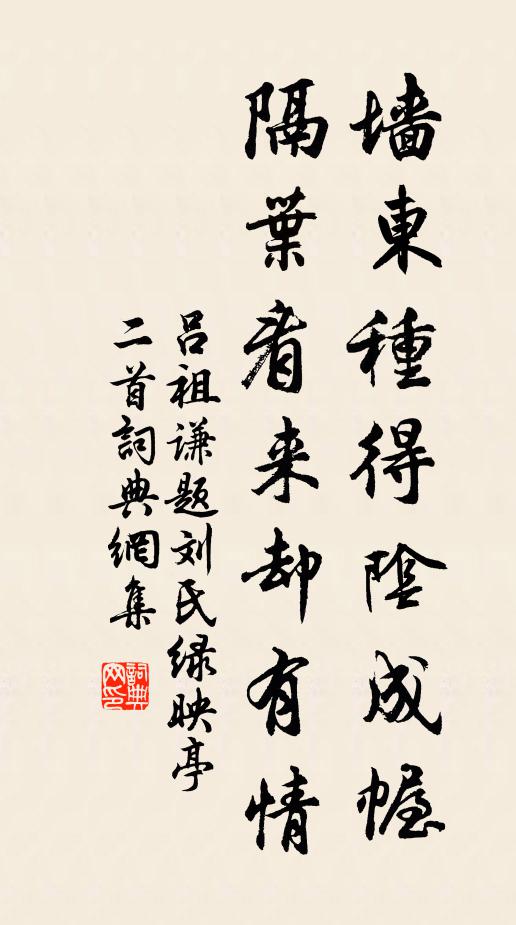 墙東種得陰成幄
隔葉看来却有情
吕祖谦题刘民緑映亭
二首詞典網集
詞典网印